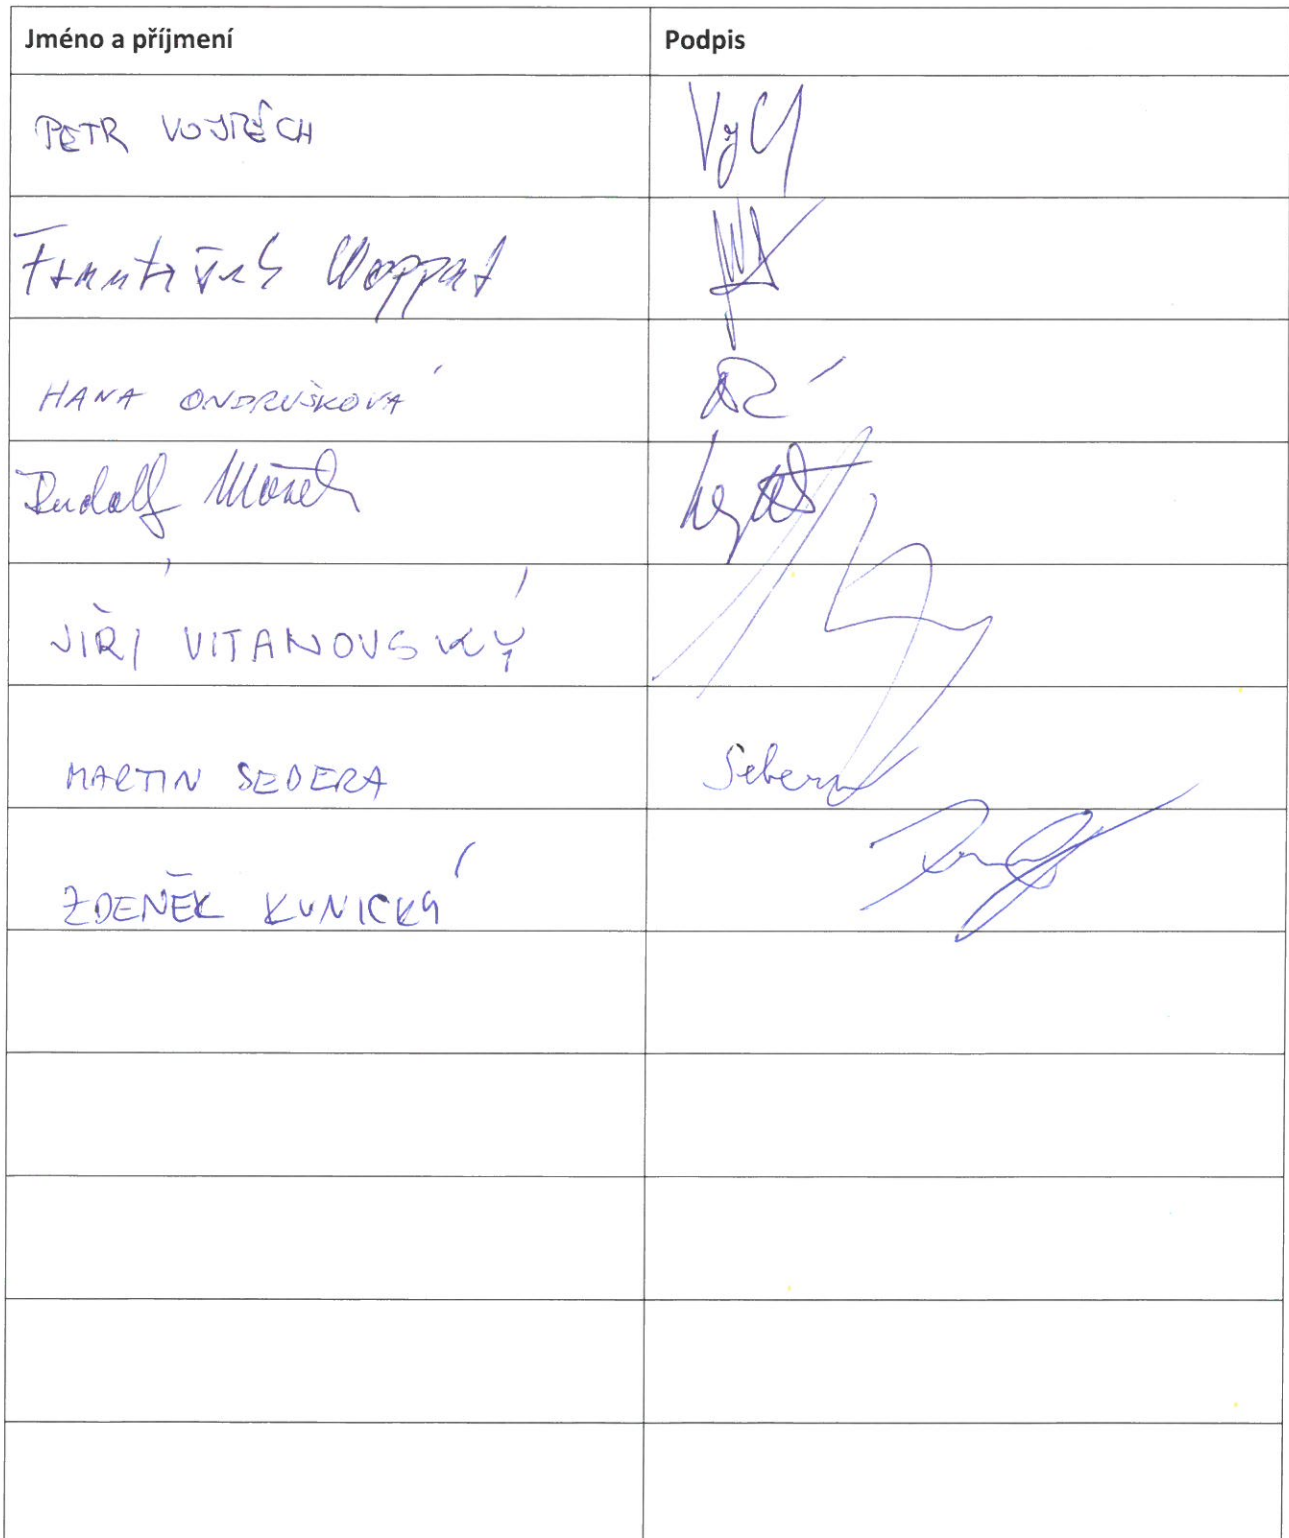 Jméno a příjmení Podpis
PETR VOJTĚCH
František Woppat
HANA ONDRUŠKOVÁ
Rudolf
JIŘÍ VITANOVSKÝ
MARTIN SEBERA Sebera
ZDENĚK KUNICKÝ